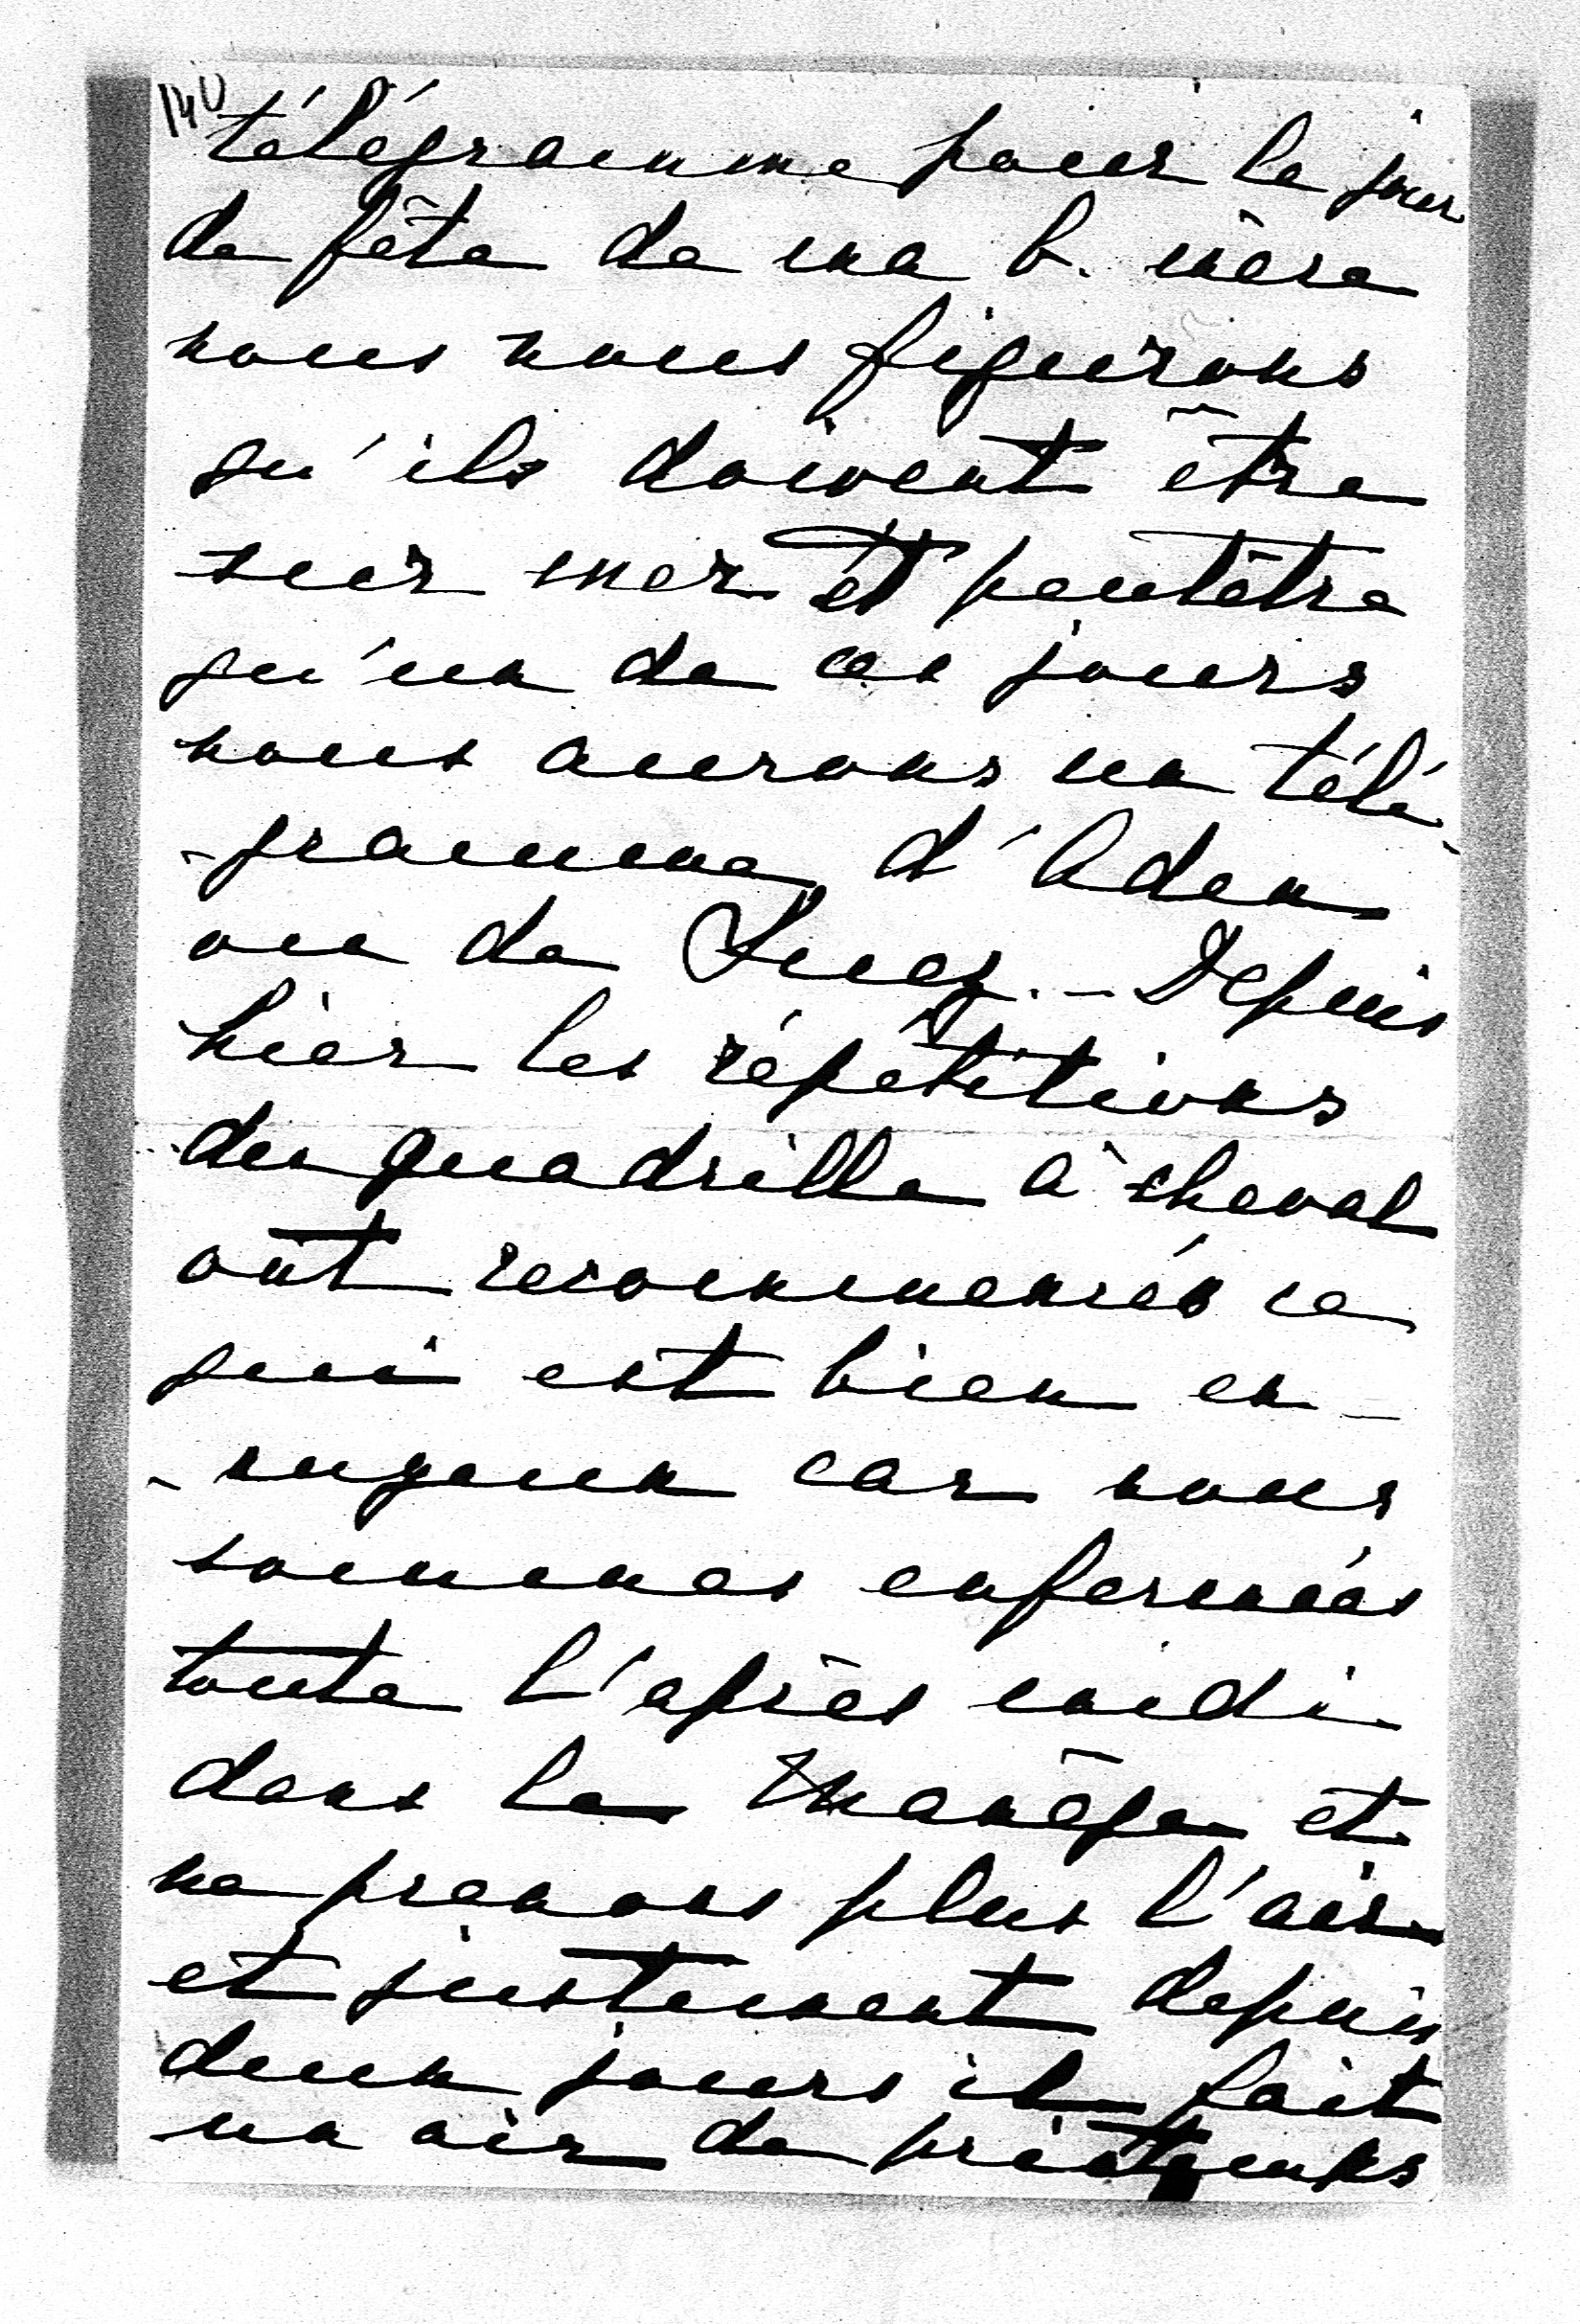 140
télégramme pour le jour
de fête de ma b. mère
nous nous figurons
qu'ils doivent être
sur mer et peutêtre
qu'un de ces jours
nous aurons un télé-
-gramme d'Aden
ou de Suez. - Depuis
hier les répétitions
du quadrille à cheval
ont recommencés ce
qui est bien en-
-nuyeux car nous
sommes enfermés
toute l'après midi
dans le Manège et
ne prenons plus l'air
et justement depuis
deux jours il fait
un air de printemps